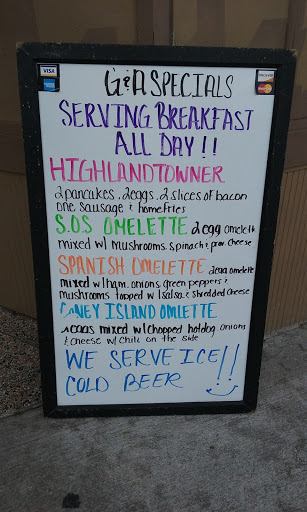 VISA
G&A SPECIALS
SERVING BREAKFAST
ALL DAY !!
HIGHLANDTOWNER
2 pancakes. 2 eggs. 2 slices of bacon
one sausage & homefries
S.O.S OMELETTE 2 egg omelette
mixed w/ mushrooms. spinach & prov. cheese
SPANISH OMELETTE 2 egg omelette
mixed w/ ham. onions. green peppers &
mushrooms topped w/ salsa & shredded cheese
CONEY ISLAND OMLETTE
2 eggs mixed w/ chopped hotdog onions
& cheese w/ chili on the side
WE SERVE ICE
COLD BEER !!